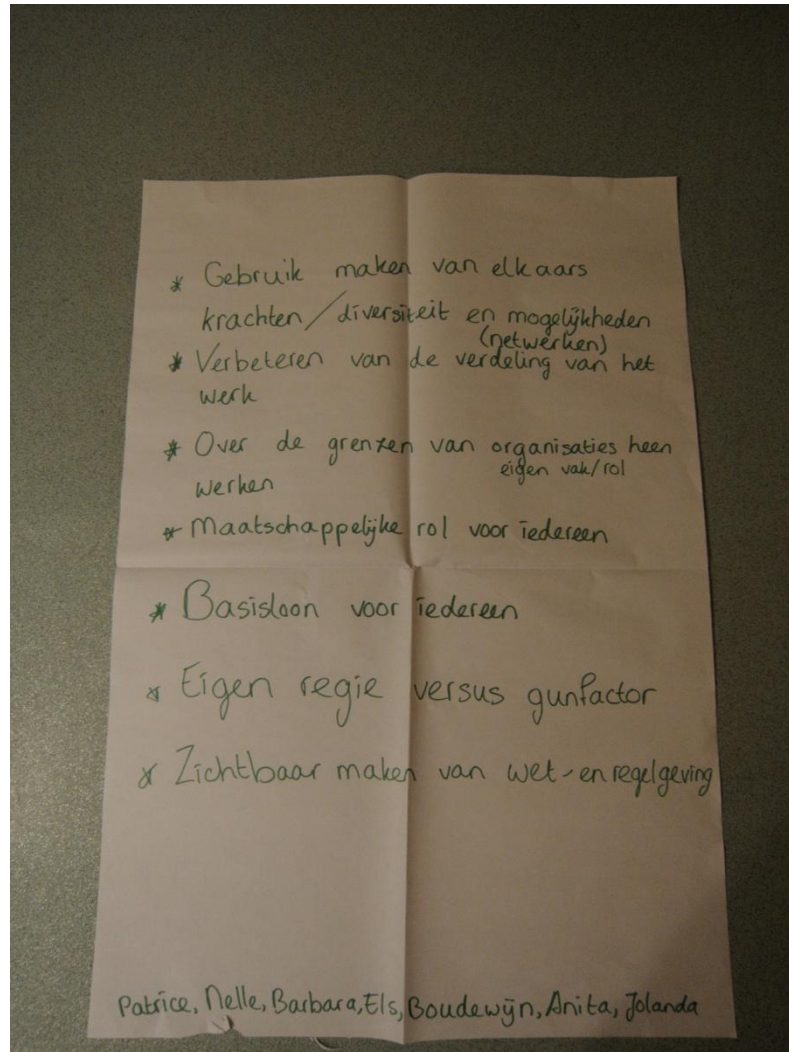 * Gebruik maken van elkaars
krachten/diversiteit en mogelijkheden
(netwerken)
* Verbeteren van de verdeling van het
werk
* Over de grenzen van organisaties heen
eigen vak/rol
werken
* Maatschappelijke rol voor iedereen
* Basisloon voor iedereen
* Eigen regie versus gunfactor
* Zichtbaar maken van wet- en regelgeving
Patrice, Nelle, Barbara, Els, Boudewijn, Anita, Jolanda